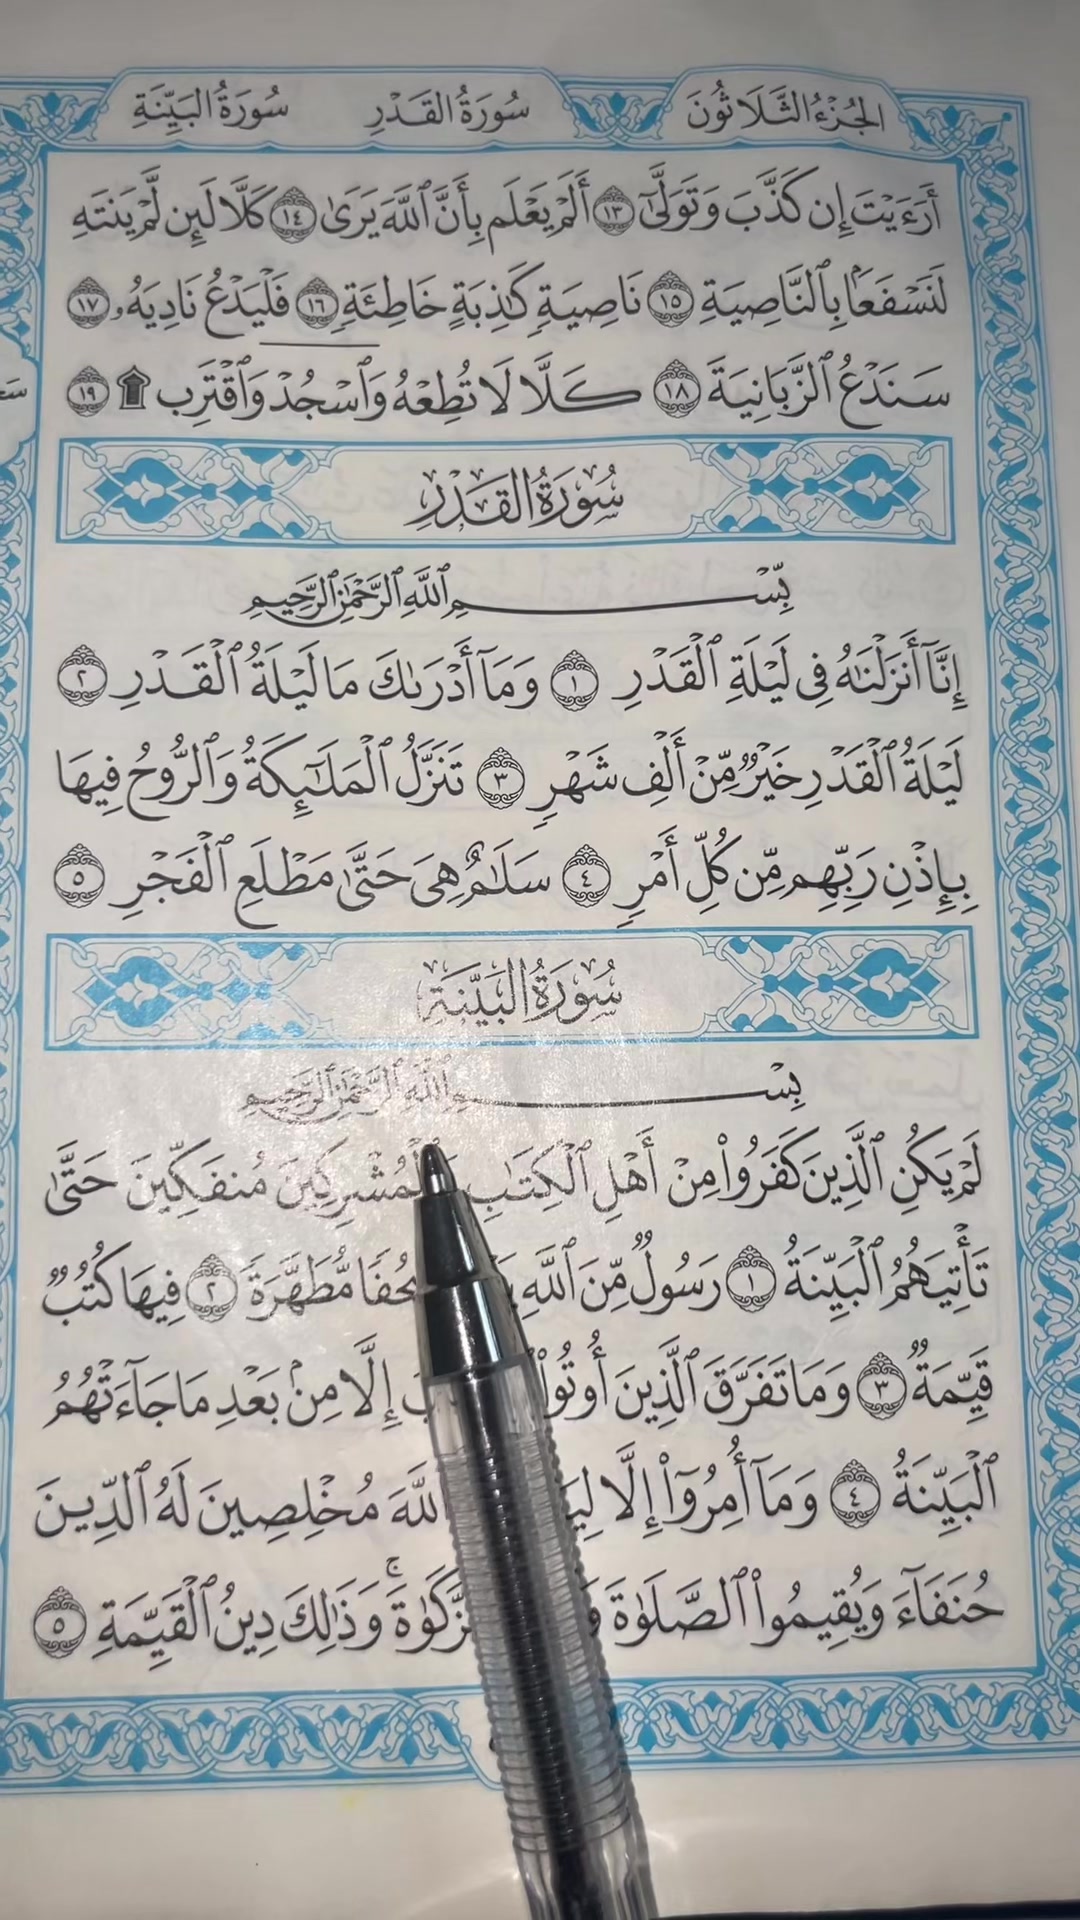 الجزء الثلاثون سورة القدر سورة البينة
أَرَءَيْتَ إِن كَذَّبَ وَتَوَلَّىٰٓ ١٣ أَلَمْ يَعْلَم بِأَنَّ ٱللَّهَ يَرَىٰ ١٤ كَلَّا لَئِن لَّمْ يَنتَهِ
لَنَسْفَعَۢا بِٱلنَّاصِيَةِ ١٥ نَاصِيَةٍ كَٰذِبَةٍ خَاطِئَةٍ ١٦ فَلْيَدْعُ نَادِيَهُۥ ١٧
سَنَدْعُ ٱلزَّبَانِيَةَ ١٨ كَلَّا لَا تُطِعْهُ وَٱسْجُدْ وَٱقْتَرِب ۩ ١٩
سُورَةُ القَدْرِ
بِسْمِ ٱللَّهِ ٱلرَّحْمَٰنِ ٱلرَّحِيمِ
إِنَّآ أَنزَلْنَٰهُ فِى لَيْلَةِ ٱلْقَدْرِ ١ وَمَآ أَدْرَىٰكَ مَا لَيْلَةُ ٱلْقَدْرِ ٢
لَيْلَةُ ٱلْقَدْرِ خَيْرٌ مِّنْ أَلْفِ شَهْرٍ ٣ تَنَزَّلُ ٱلْمَلَٰٓئِكَةُ وَٱلرُّوحُ فِيهَا
بِإِذْنِ رَبِّهِم مِّن كُلِّ أَمْرٍ ٤ سَلَٰمٌ هِىَ حَتَّىٰ مَطْلَعِ ٱلْفَجْرِ ٥
سُورَةُ البَيِّنَةِ
بِسْمِ ٱللَّهِ ٱلرَّحْمَٰنِ ٱلرَّحِيمِ
لَمْ يَكُنِ ٱلَّذِينَ كَفَرُوا۟ مِنْ أَهْلِ ٱلْكِتَٰبِ ٱلْمُشْرِكِينَ مُنفَكِّينَ حَتَّىٰ
تَأْتِيَهُمُ ٱلْبَيِّنَةُ ١ رَسُولٌ مِّنَ ٱللَّهِ مُّطَهَّرَةً ٢ فِيهَا كُتُبٌ
قَيِّمَةٌ ٣ وَمَا تَفَرَّقَ ٱلَّذِينَ أُوتُوا۟ إِلَّا مِنۢ بَعْدِ مَا جَآءَتْهُمُ
ٱلْبَيِّنَةُ ٤ وَمَآ أُمِرُوٓا۟ إِلَّا ٱللَّهَ مُخْلِصِينَ لَهُ ٱلدِّينَ
حُنَفَآءَ وَيُقِيمُوا۟ ٱلصَّلَوٰةَ ٱلزَّكَوٰةَۚ وَذَٰلِكَ دِينُ ٱلْقَيِّمَةِ ٥